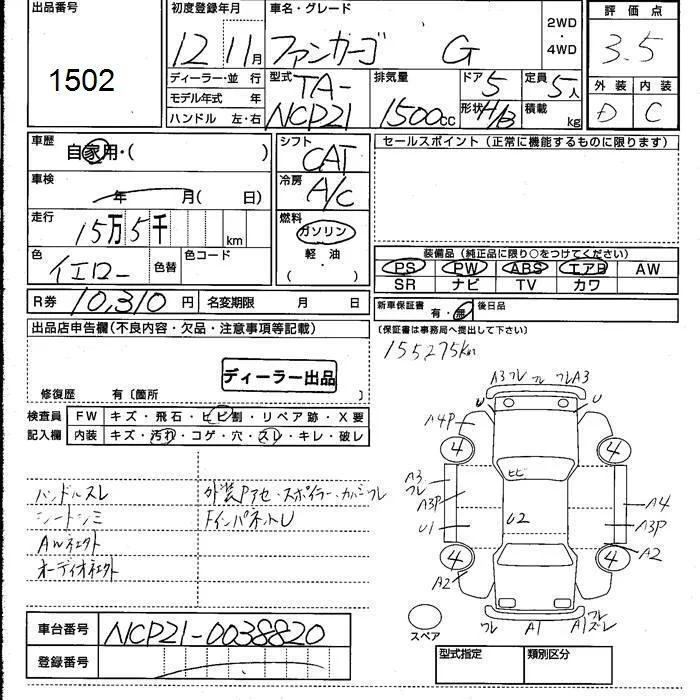 出品番号
1502
初度登録年月
12年11月
車名・グレード
ファンカーゴ G
2WD
・
4WD
評価点
3.5
ディーラー・並行
モデル年式 年
ハンドル 左・右
型式
TA-
NCP21
排気量
1500cc
ドア
5
形状
H/B
定員
5人
積載
kg
外装 内装
D C
車歴
自家用・( )
車検
年 月( 日)
走行
15万5千 km
色
イエロー
色替
色コード
シフト
CAT
冷房
A/C
燃料
ガソリン
軽油
( ・ )
セールスポイント (正常に機能するものに限ります)
装備品 (純正品に限り○をつけてください)
PS PW ABS エアB AW
SR ナビ TV カワ
R券 10,310円 名変期限 月 日
新車保証書 有・無 後日品
(保証書は事務局へ提出して下さい)
155275km
出品店申告欄(不良内容・欠品・注意事項等記載)
ディーラー出品
修復歴 有〔箇所 〕
検査員
記入欄
FW キズ・飛石・ヒビ割・リペア跡・X要
内装 キズ・汚れ・コゲ・穴・スレ・キレ・破レ
ハンドルスレ
シートシミ
オーディオ
A3 フレ フレ フレA3
U U
A4P
4 4
ヒビ
A3
フレ
A3P
U1
U2
A4
A3P
A2
4 4
A2
フレ A1 A1フレ
ズレ
スペア
車台番号 NCP21-0038820
登録番号
型式指定 類別区分